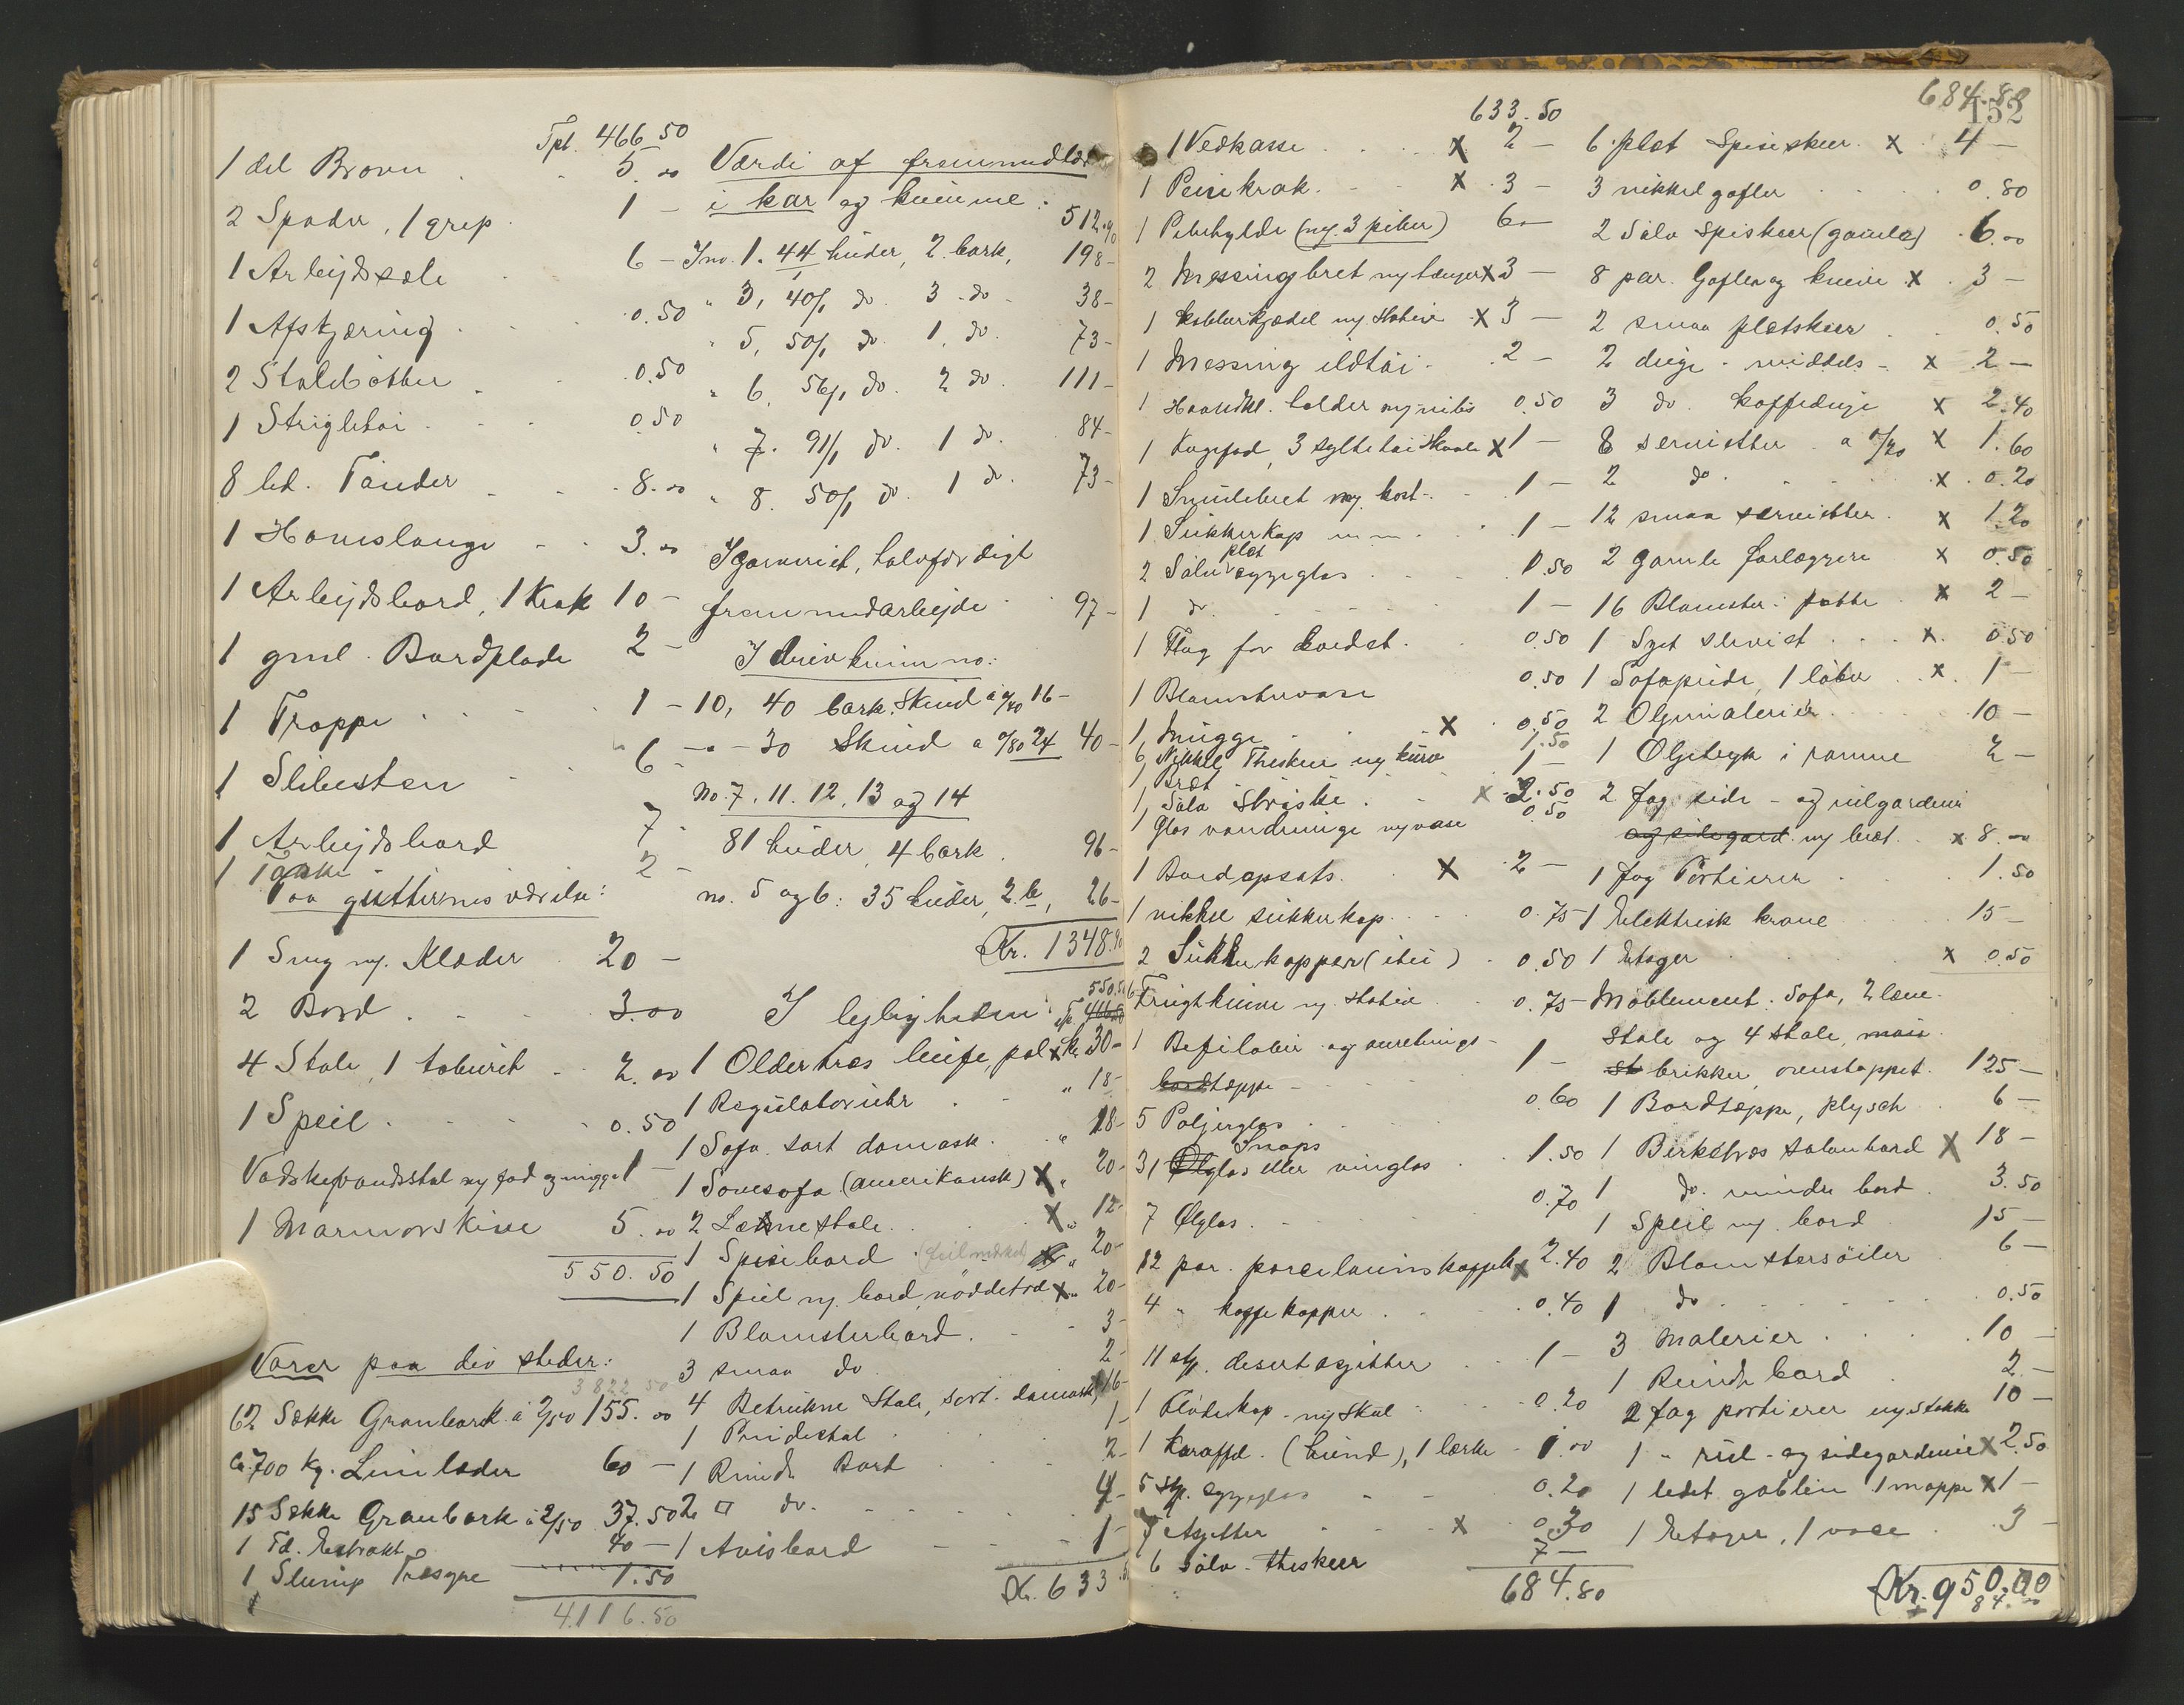 Tpt. 466 50
1 del Brown 5.00
2 Spader, 1 grep 1 -
1 Arbeidssele 6 -
1 Afskjæring 0.50
2 Staldbötter 0.50
1 Strigletöi 0.50
8 led. Tönder 8.00
1 Haveslange 3.00
1 Arbeidsbord, 1 Krak 10 -
1 gml. Bordplade 2 -
1 Trappe 1 -
1 Slibesten 6 -
1 Arbeidsbord 7 -
1 Taske 2 -
Paa gutternes værelse:
1 Seng m. Klæder 20 -
2 Bord 3.00
4 Stole, 1 taburet 2.00
1 Speil 0.50
Vadskevandsstel m/ fad og mugge 1 -
1 Marmorskive 5.00
550.50
Varer paa div steder:
3822 50
62 Sække Granbark à 2/50 155.00
ca. 700 kg. Limlæder 60 -
15 Sække Granbark à 2/50 37.50
1 Fd. Extrakt 40 -
1 Slump Træsyre 1.50
4116.50
Værdi af
i kar og kumme: 512.90
I no. 1. 44 huder, 2. bark, 198 -
" 3, 40/1 do. 3 do 38 -
" 5, 50/1 do. 1. do. 73 -
" 6, 56/1 do. 2 do. 111 -
" 7. 91/1 do. 1 do. 84 -
" 8. 50/1 do. 1 do. 73 -
I garveriet, halvfærdigt
fremmedarbejde 97 -
I kum no:
10, 40 bark. Skind à 0/40 16 -
" - 30 Skind a 0/80 24 40 -
No. 7. 11. 12. 13 og 14
81 huder, 4 bark 96 -
no. 5 og 6: 35 huder, 2. b, 26 -
Kr. 1348.90
I leiligheden: 550.50
Tp. 466.50
1 Oldertræs , pol x Kr 30 -
1 Regulatoruhr " 18 -
1 Sofa sort damask " 18 -
1 Sovesofa (amerikansk) X " 20 -
2 Lænestole X " 12 -
1 Spisebord (feilmerket) x " 20 -
1 Speil m. bord, nöddetræ x " 20 -
1 Blomsterbord 3 -
3 smaa do 2 -
4 Betrukne Stole, sort damask, 16 -
1 Piedestal 1 -
1 Rundt Bord 2 -
2 □ do. 4 -
1 Avisbord 1 -
Kr. 633
633.50
1 Vedkasse X 2 -
1 Peiskrak X 3 -
1 Pibehylde (m. 3 piber) 6 -
2 Messingbret m/ tænger X 3 -
1 Kobberkjedel m/ Stativ X 3 -
1 Messing ildtöi 2 -
1 Haandkl. holder m/ nips 0.50
1 Kagefad, 3 syltetöi Skaale X 1 -
1 Smulebret m/ kost 1 -
1 Sukkerkop m m 1 -
2 Sölv plet æggeglas 1.50
1 do. 1 -
1 Flag for bordet 0.50
1 Blomstervase 0.50
1 Mugge X 0.50
6 Nikkel Theskeer m/ kurv 1.50
1 Bræt 1 -
1 Sölv Ströske X 2.50
1 Glas vandmugge m/ vase 0.50
1 Bordopsats X 2 -
1 nikkel sukkerkop 0.75
2 Sukkerkopper (itu) 0.50
Frugtknive m/ stativ 0.75
1 Befiløber og anretnings-
bordtæppe 1 -
5 Poljerglas 0.60
31 Ølglas Snaps eller vinglas 1.50
7 Ølglas 0.70
12 par. porcelainskopper x 2.40
4 " kaffekopper 0.40
11 stk. desertasjetter 1 -
1 Flödekop m/ Skål 0.20
1 Karaffel (hund), 1 lærke 1.00
5 stk. eggeglas 0.20
5 Asjetter x 0.30
6 Sölv-theskeer 7 -
684.80
684.80
152
6 plet Spiseskeer x 4 -
3 nikkel gafler 0.80
2 Sölv Spiskeer (gamle) 6.00
8 par. Gafler og knive x 3 -
2 smaa pletskeer 0.50
2 duge - middels - x 2 -
3 do. kaffeduge x 2.40
8 servietter a 0/20 x 1.60
2 do x 0.20
12 smaa servietter x 1.20
2 gamle forlæggere x 0.50
16 Blomster i potte x 2 -
1 Syet serviet x 0.50
1 Sofapude, 1 löber x 1 -
2 Oljemalerier 10 -
1 Oljetryk i ramme 2 -
2 Fag side- og rulgardiner
og sidegard. m/ bræt x 8.00
1 Fag Portierer 1.50
1 Elektrisk krone 15 -
1 Etager x 0.50
Möblement: Sofa, 2 læne-
stole og 4 stole,
st brikker, ovnstæppet 125 -
1 Bordtæppe, plysch 6 -
1 Birketræs salonbord X 18 -
1 do. mindre bord 3.50
1 Speil m/ bord 15 -
2 Blomstersöiler 6 -
1 do 0.50
3 Malerier 10 -
1 Rundt bord 2. -
2 fag portierer m/ stokke 10 -
1 " rul- og sidegardiner X 2.50
1 ledet goblin 1 mappe X 1 -
1 Etager, 1 vase 3 -
Kr. 950.00
84.00